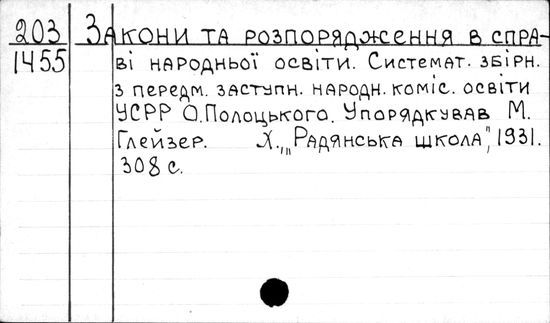 203 Закони та розпорядження в спра-
1455 ві народньої освіти. Системат. збірн.
з передм. заступн. народн. коміс. освіти
УСРР О.Полоцького. Упорядкував М.
Глейзер. Х., „Радянська школа", 1931.
308 с.